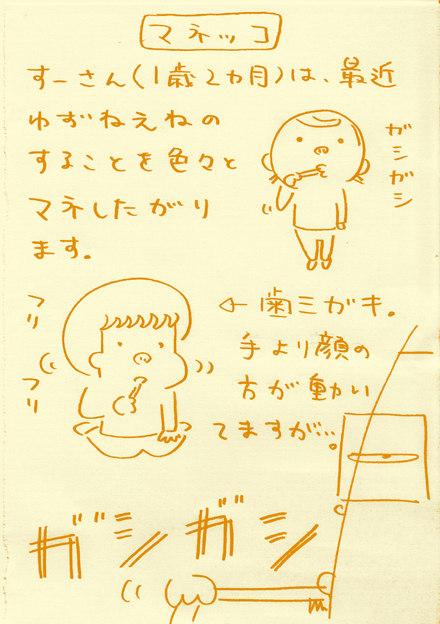 マネッコ
すーさん(1歳2カ月)は、最近
ゆずねえねの
することを色々と
マネしたがり
ます。
ガシガシ
←歯ミガキ。
手より顔の
方が動い
てますが…。
フリ
フリ
ガシガシ